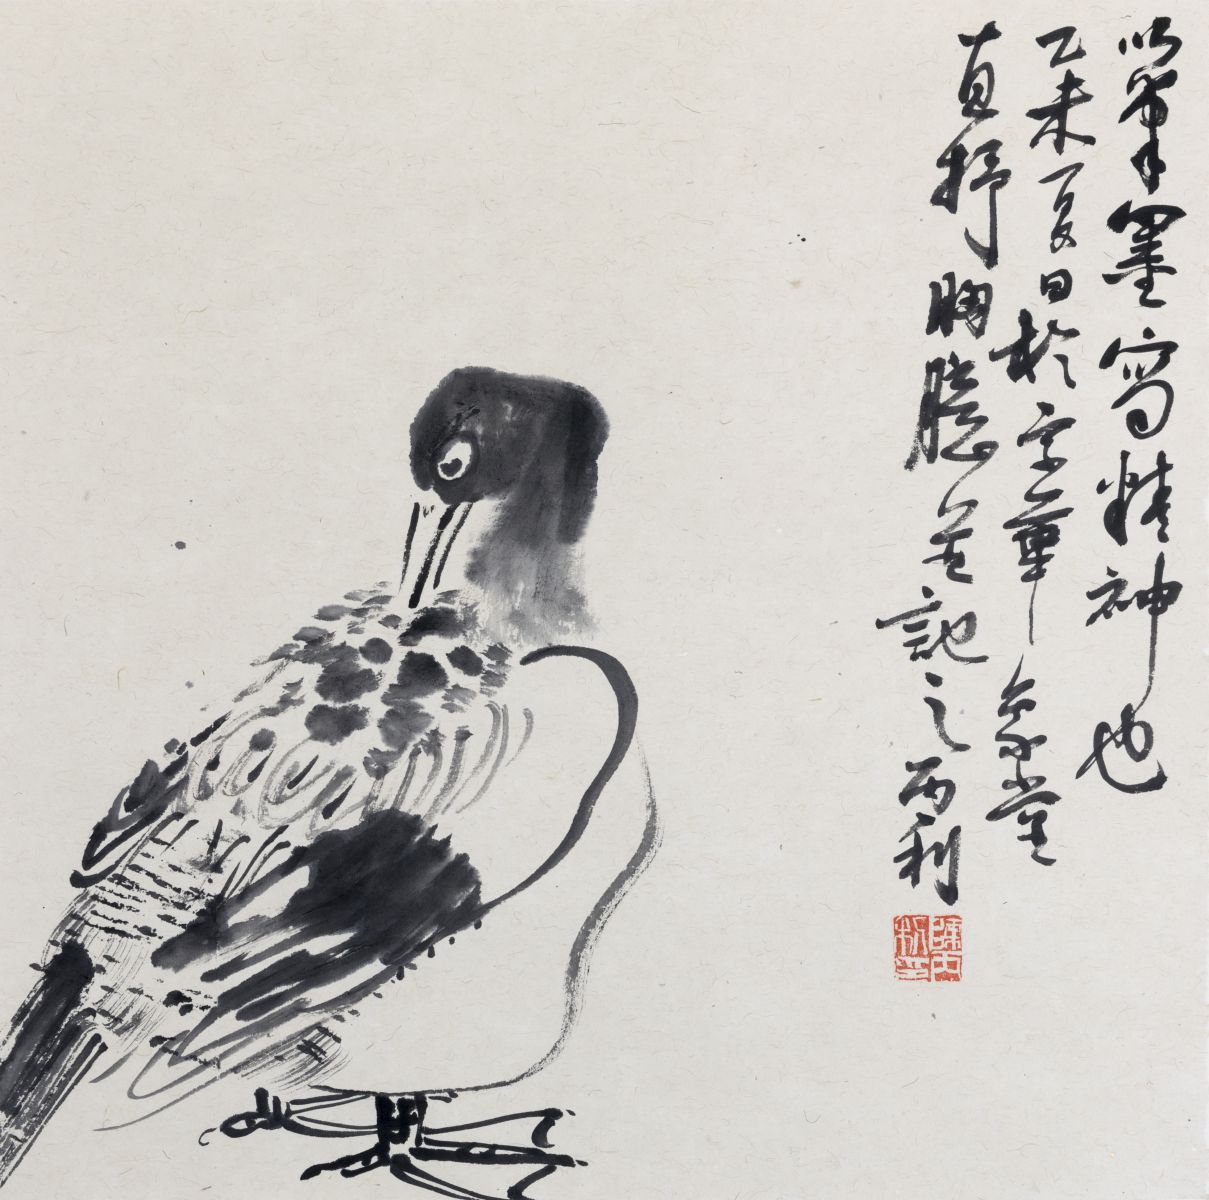 以笔墨写精神也
乙未夏日於京華象堂
直抒胸臆並記之丙利